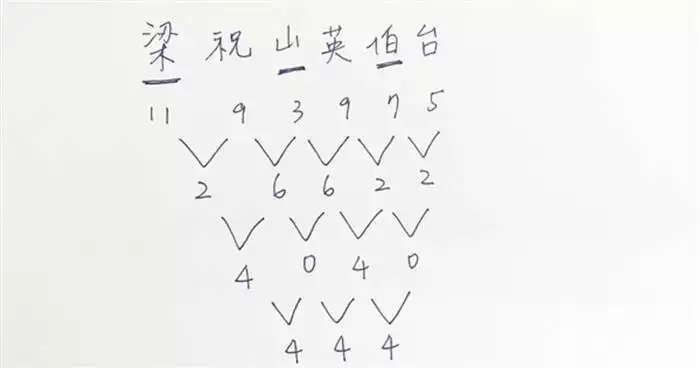 梁祝山英伯台
11 9 3 9 7 5
2 6 6 2 2
4 0 4 0
4 4 4